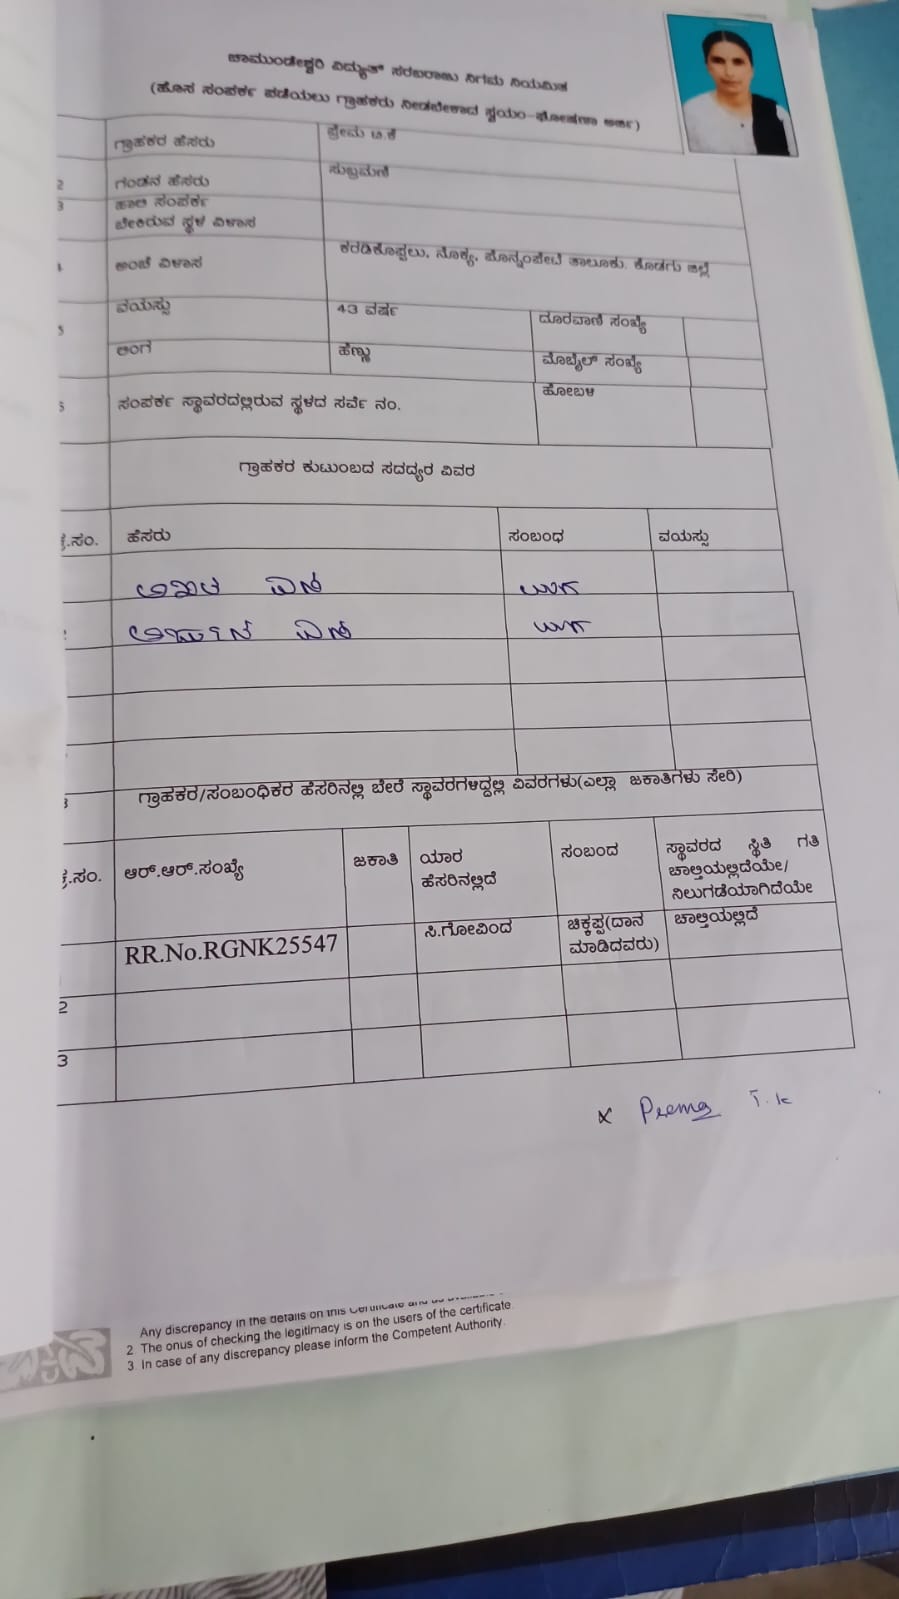 ಚಾಮುಂಡೇಶ್ವರಿ ವಿದ್ಯುತ್ ಸರಬರಾಜು ನಿಗಮ ನಿಯಮಿತ
(ಹೊಸ ಸಂಪರ್ಕ ಪಡೆಯಲು ಗ್ರಾಹಕರು ನೀಡಬೇಕಾದ ಸ್ವಯಂ-ಘೋಷಣಾ ಅರ್ಜಿ)
ಗ್ರಾಹಕರ ಹೆಸರು ಪ್ರೇಮ ಟಿ.ಕೆ
2 ಗಂಡನ ಹೆಸರು ಸುಬ್ರಮಣಿ
3 ಹಾಲಿ ಸಂಪರ್ಕ
ಬೇಕಿರುವ ಸ್ಥಳ ವಿಳಾಸ
ಅಂಚೆ ವಿಳಾಸ ಕರಡಿಕೊಪ್ಪಲು, ನೊಕ್ಯ, ಪೊನ್ನಂಪೇಟೆ ತಾಲೂಕು. ಕೊಡಗು ಜಿಲ್ಲೆ
5 ವಯಸ್ಸು 43 ವರ್ಷ ದೂರವಾಣಿ ಸಂಖ್ಯೆ
ಲಿಂಗ ಹೆಣ್ಣು ಮೊಬೈಲ್ ಸಂಖ್ಯೆ
ಸಂಪರ್ಕ ಸ್ಥಾವರದಲ್ಲಿರುವ ಸ್ಥಳದ ಸರ್ವೆ ನಂ. ಹೋಬಳಿ
ಗ್ರಾಹಕರ ಕುಟುಂಬದ ಸದದ್ಯರ ವಿವರ
ಕ್ರ.ಸಂ. ಹೆಸರು ಸಂಬಂಧ ವಯಸ್ಸು
ಗ್ರಾಹಕರ/ಸಂಬಂಧಿಕರ ಹೆಸರಿನಲ್ಲಿ ಬೇರೆ ಸ್ಥಾವರಗಳಿದ್ದಲ್ಲಿ ವಿವರಗಳು(ಎಲ್ಲಾ ಜಕಾತಿಗಳು ಸೇರಿ)
ಕ್ರ.ಸಂ. ಆರ್.ಆರ್.ಸಂಖ್ಯೆ ಜಕಾತಿ ಯಾರ
ಹೆಸರಿನಲ್ಲಿದೆ ಸಂಬಂದ ಸ್ಥಾವರದ ಸ್ಥಿತಿ ಗತಿ
ಚಾಲ್ತಿಯಲ್ಲಿದೆಯೇ/
ನಿಲುಗಡೆಯಾಗಿದೆಯೇ
RR.No.RGNK25547 ಸಿ.ಗೋವಿಂದ ಚಿಕ್ಕಪ್ಪ(ದಾನ
ಮಾಡಿದವರು) ಚಾಲ್ತಿಯಲ್ಲಿದೆ
2
3
x Prema T.K
Any discrepancy in the details on this Certificate and as available
2 The onus of checking the legitimacy is on the users of the certificate.
3 In case of any discrepancy please inform the Competent Authority.